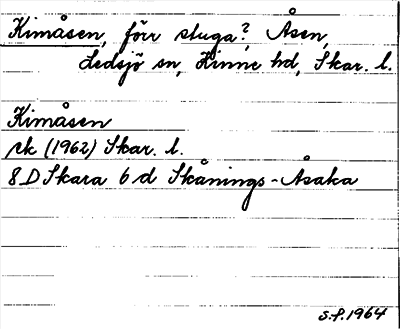 Kimåsen, förr stuga?, Åsen,
Ledsjö sn, Kinne hd, Skar. l.
Kimåsen
rk (1962) Skar. l.
8D Skara 6 d Skånings-Åsaka
S.F. 1964